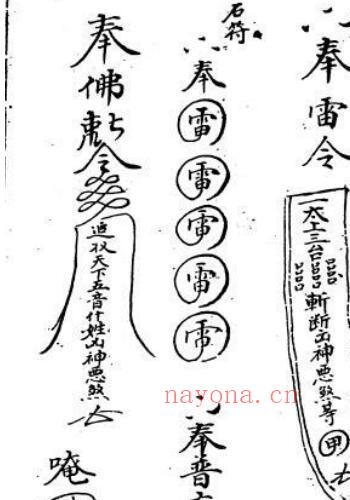 石符
奉雷令
太上三台
斬斷凶神惡煞等
甲
奉
雷
雷
雷
雷
雷
奉普
奉佛敕令
追收天下五音什姓凶神悪煞
唵
nayona.cn